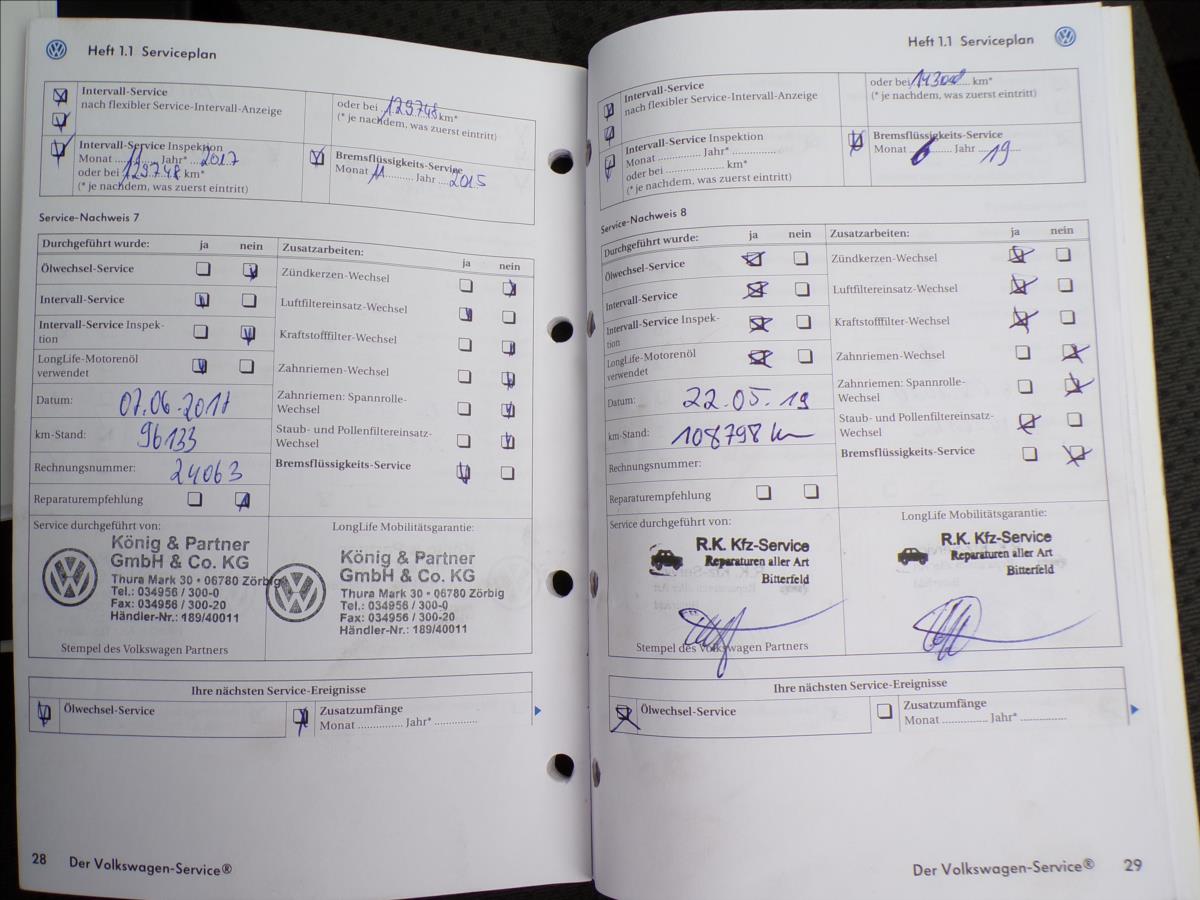 Heft 1.1 Serviceplan
Intervall-Service
nach flexibler Service-Intervall-Anzeige
oder bei 129748 km*
(* je nachdem, was zuerst eintritt)
Intervall-Service Inspektion
Monat 11 Jahr* 2017
oder bei 129748 km*
(* je nachdem, was zuerst eintritt)
Bremsflüssigkeits-Service
Monat 11 Jahr 2015
Service-Nachweis 7
Durchgeführt wurde: ja nein
Zusatzarbeiten: ja nein
Ölwechsel-Service
Intervall-Service
Intervall-Service Inspek-
tion
LongLife-Motorenöl
verwendet
Datum: 07.06.2017
km-Stand: 96133
Rechnungsnummer: 24063
Reparaturempfehlung
Zündkerzen-Wechsel
Luftfiltereinsatz-Wechsel
Kraftstofffilter-Wechsel
Zahnriemen-Wechsel
Zahnriemen: Spannrolle-
Wechsel
Staub- und Pollenfiltereinsatz-
Wechsel
Bremsflüssigkeits-Service
Service durchgeführt von:
König & Partner
GmbH & Co. KG
Thura Mark 30 • 06780 Zörbig
Tel.: 034956 / 300-0
Fax: 034956 / 300-20
Händler-Nr.: 189/40011
Stempel des Volkswagen Partners
LongLife Mobilitätsgarantie:
König & Partner
GmbH & Co. KG
Thura Mark 30 • 06780 Zörbig
Tel.: 034956 / 300-0
Fax: 034956 / 300-20
Händler-Nr.: 189/40011
Ihre nächsten Service-Ereignisse
Ölwechsel-Service
Zusatzumfänge
Monat Jahr*
28 Der Volkswagen-Service®
Heft 1.1 Serviceplan
Intervall-Service
nach flexibler Service-Intervall-Anzeige
oder bei km*
(* je nachdem, was zuerst eintritt)
Intervall-Service Inspektion
Monat Jahr*
oder bei km*
(* je nachdem, was zuerst eintritt)
Bremsflüssigkeits-Service
Monat 6 Jahr 19
Service-Nachweis 8
Durchgeführt wurde: ja nein
Zusatzarbeiten: ja nein
Ölwechsel-Service
Intervall-Service
Intervall-Service Inspek-
tion
LongLife-Motorenöl
verwendet
Datum: 22.05.19
km-Stand: 108798 km
Rechnungsnummer:
Reparaturempfehlung
Zündkerzen-Wechsel
Luftfiltereinsatz-Wechsel
Kraftstofffilter-Wechsel
Zahnriemen-Wechsel
Zahnriemen: Spannrolle-
Wechsel
Staub- und Pollenfiltereinsatz-
Wechsel
Bremsflüssigkeits-Service
Service durchgeführt von:
R.K. Kfz-Service
Reparaturen aller Art
Bitterfeld
Stempel des Volkswagen Partners
LongLife Mobilitätsgarantie:
R.K. Kfz-Service
Reparaturen aller Art
Bitterfeld
Ihre nächsten Service-Ereignisse
Ölwechsel-Service
Zusatzumfänge
Monat Jahr*
Der Volkswagen-Service® 29